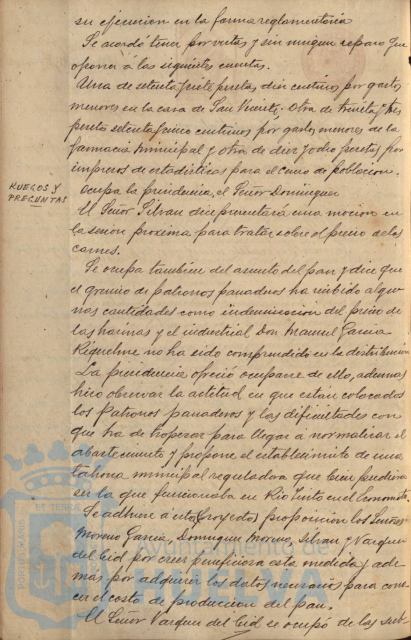 su ejecucion en la forma reglamentaria
Se acordó tener por vistas y sin ningun reparo que
oponer á las siguientes cuentas.
Una de setenta y siete pesetas, diez centimos por gastos
menores en la casa de San Vicente. Otra de treinta y tres
pesetas setenta y cinco centimos por gastos menores de la
farmacia Municipal y otra de diez y ocho pesetas, por
impresos de estadisticas para el censo de poblacion.
RUEGOS Y
PREGUNTAS
Ocupa la presidencia, el Señor Dominguez
El Señor Silvan dice presentará una mocion en
la sesion proxima para tratar sobre el precio de las
carnes.
Se ocupa tambien del asunto del pan y dice que
el gremio de patronos panaderos ha recibido algu-
nas cantidades como indemnizacion del precio de
las harinas y el industrial Don Manuel Garcia
Riquelme no ha sido comprendido en la distribucion
La presidencia ofreció ocuparse de ello, ademas
hizo observar la actitud en que están colocados
los Patronos panaderos y las dificultades con
que ha de tropezar para llegar a normalizar el
abastecimiento y propone el establecimiento de una
tahona municipal reguladora que bien pudiera
ser la que funcionaba en Rio Tinto en el Economato.
Se adhiere á esta proposicion los Señores
Moreno Garcia, Dominguez Moreno, Silvan y Vazquez
del Cid por creer beneficiosa esta medida y ade-
más por adquirir los datos necesarios para cono-
cer el costo de produccion del pan.
El Señor Vazquez del Cid se ocupó de las sub-
PORTUS MARIS
ET TERRAE
Ayuntamiento de
HUELVA